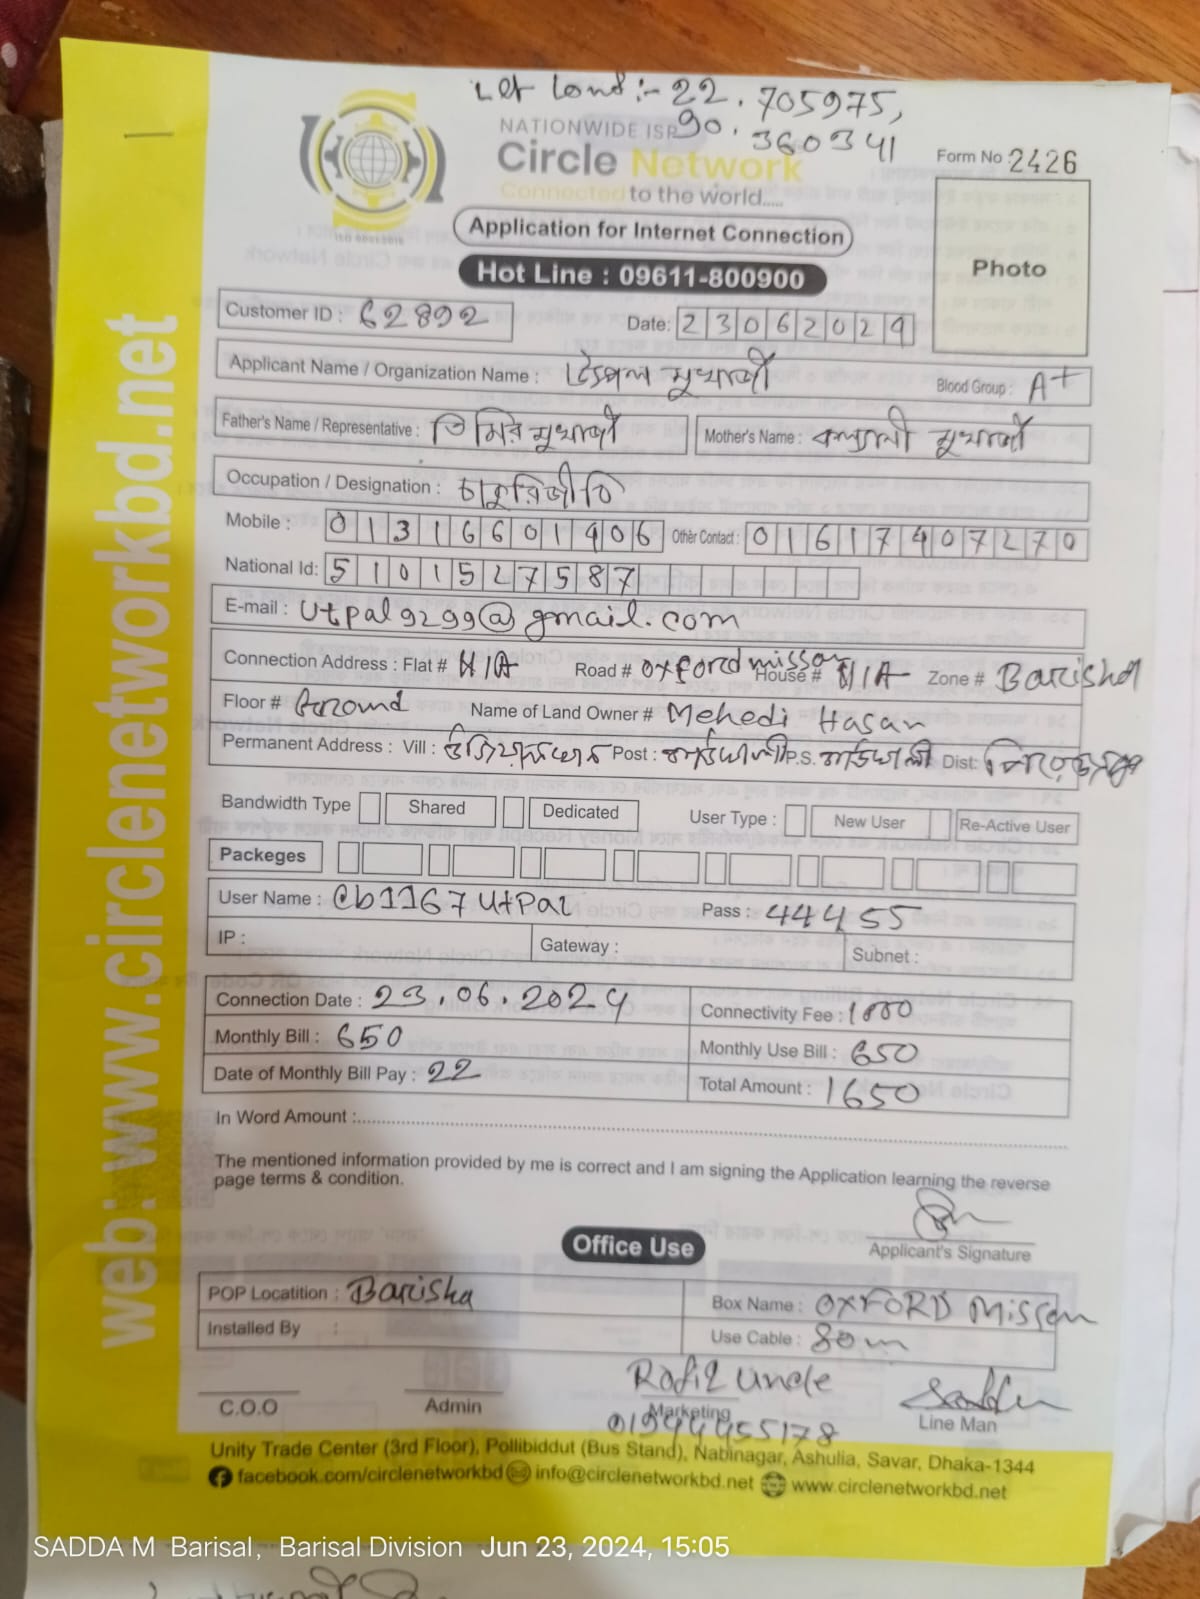 Let Lond:- 22.705975,
90.360341
NATIONWIDE ISP
Circle Network
Connected to the world.....
Form No : 2426
Application for Internet Connection
Hot Line : 09611-800900
Photo
Customer ID : 62892
Date: 23062024
Applicant Name / Organization Name : উৎপল মুখার্জী
Blood Group : A+
Father's Name / Representative : তিমির মুখার্জী
Mother's Name : কল্যানী মুখার্জী
Occupation / Designation : চাকুরিজীবি
Mobile : 01316601906 Other Contact : 01617407270
National Id: 5101527587
E-mail : utpal9299@gmail.com
Connection Address : Flat # N/A Road # oxford misson House # N/A Zone # Barishal
Floor # Ground Name of Land Owner # Mehedi Hasan
Permanent Address : Vill : Post : P.S. Dist:
Bandwidth Type Shared Dedicated User Type : New User Re-Active User
Packeges
User Name : cb1167utpal Pass : 44455
IP : Gateway : Subnet :
Connection Date : 23.06.2024 Connectivity Fee : 1000
Monthly Bill : 650 Monthly Use Bill : 650
Date of Monthly Bill Pay : 22 Total Amount : 1650
In Word Amount :
The mentioned information provided by me is correct and I am signing the Application learning the reverse
page terms & condition.
Applicant's Signature
Office Use
POP Locatition : Barisha Box Name : OXFORD Misson
Installed By : Use Cable : 80m
Rafiq uncle
C.O.O Admin Marketing Line Man
01944455178
Unity Trade Center (3rd Floor), Pollibiddut (Bus Stand), Nabinagar, Ashulia, Savar, Dhaka-1344
facebook.com/circlenetworkbd info@circlenetworkbd.net www.circlenetworkbd.net
web: www.circlenetworkbd.net
SADDA M Barisal, Barisal Division Jun 23, 2024, 15:05